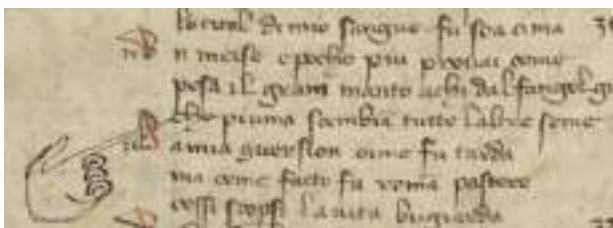 lo titol de mio sangue fa soa cima
n meise e pocho piu prouai come
pesa il gram manto achi dal fangol gu
che piuma sembra tutte laltre some
a mia guersion oime fu tarda
ma come facto fu roma pastore
cossi scopsi la uita bugiarda